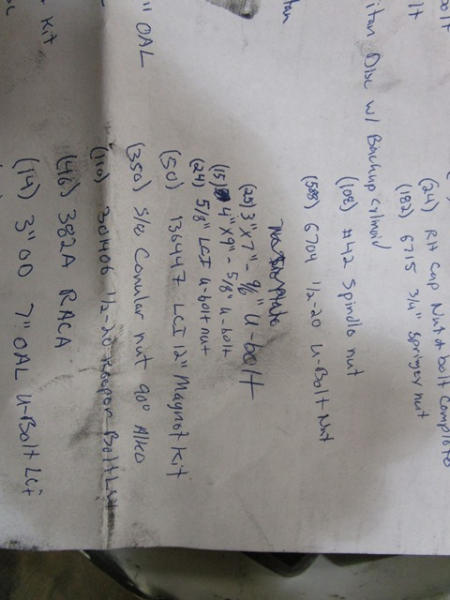 bolt
(24) RH Cap Nut & bolt Complete
(182) 6715 3/4" springer nut
itan Disc w/ Backup cylinoid
tan
(108) #42 Spindle nut
(588) 6704 1/2-20 U-Bolt Nut
(25) 3"x7" - 9/16" U-bolt
(15) 4"x9" - 5/8" U-bolt
(24) 5/8" LCI U-bolt nut
(50) 136447 LCI 12" Magnet Kit
" OAL
(350) Conular nut 90° Alko
(110) 301406 1/2-20 Keeper Bolt LCI
(46) 382A RACA
Kit
(14) 3" OD 7" OAL U-Bolt LCI